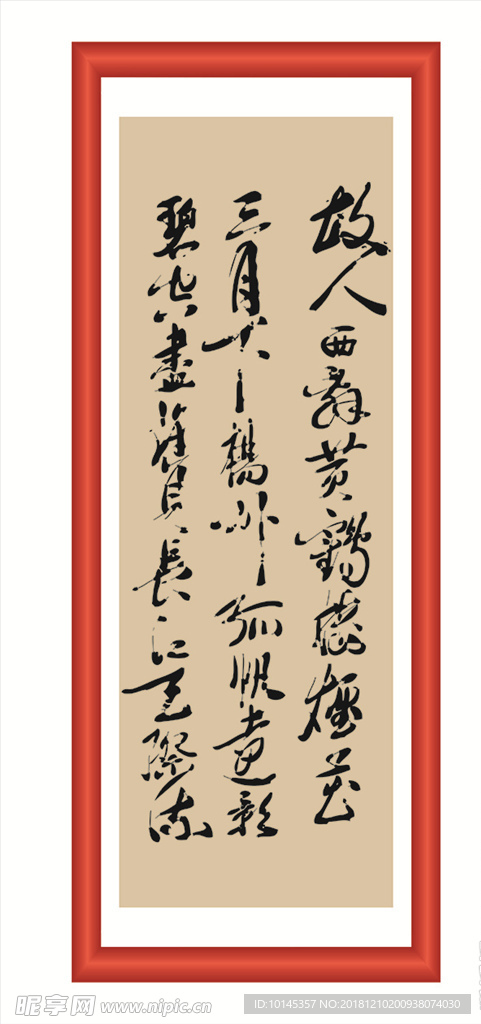 故人西辭黄鶴樓煙花
三月下揚州孤帆遠影
碧空盡惟見長江天際流
昵享网 www.nipic.cn
ID:10145357 NO:20181210200938074030